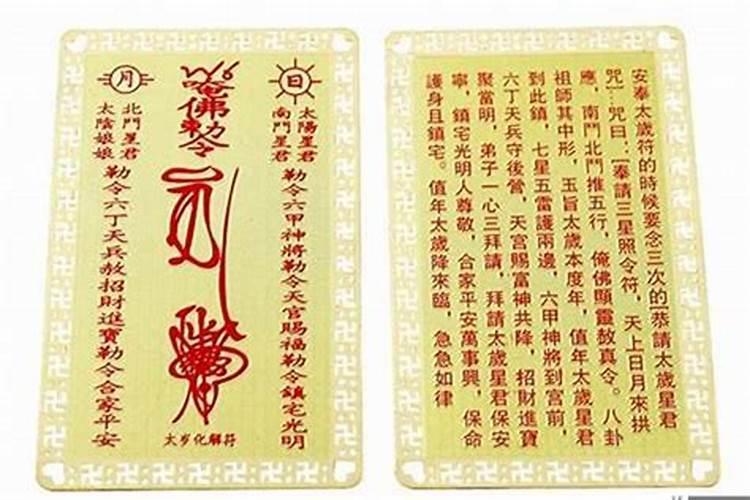 日
太陽星君
南鬥星君
勒令六甲神將勒令天官賜福勒令鎮宅光明
佛勅令
月
北鬥星君
太陰娘娘
勒令六丁天兵赦招財進寶勒令合家平安
太岁化解符
安奉太歲符的時候要念三次的[恭請太歲星君
咒]…咒曰:[奉請三星照令符,天上日月來拱
應,南鬥北鬥推五行,俺佛顯靈敖真令。八卦
祖師其中形,玉旨太歲本度年,值年太歲星君
到此鎮,七星五雷護兩邊,六甲神將到宮前,
六丁天兵守後營,天宮賜富神共降,招財進寶
聚當明,弟子一心三拜請,拜請太歲星君保安
寧,鎮宅光明人尊敬,合家平安萬事興,保命
護身且鎮宅。值年太歲降來臨,急急如律